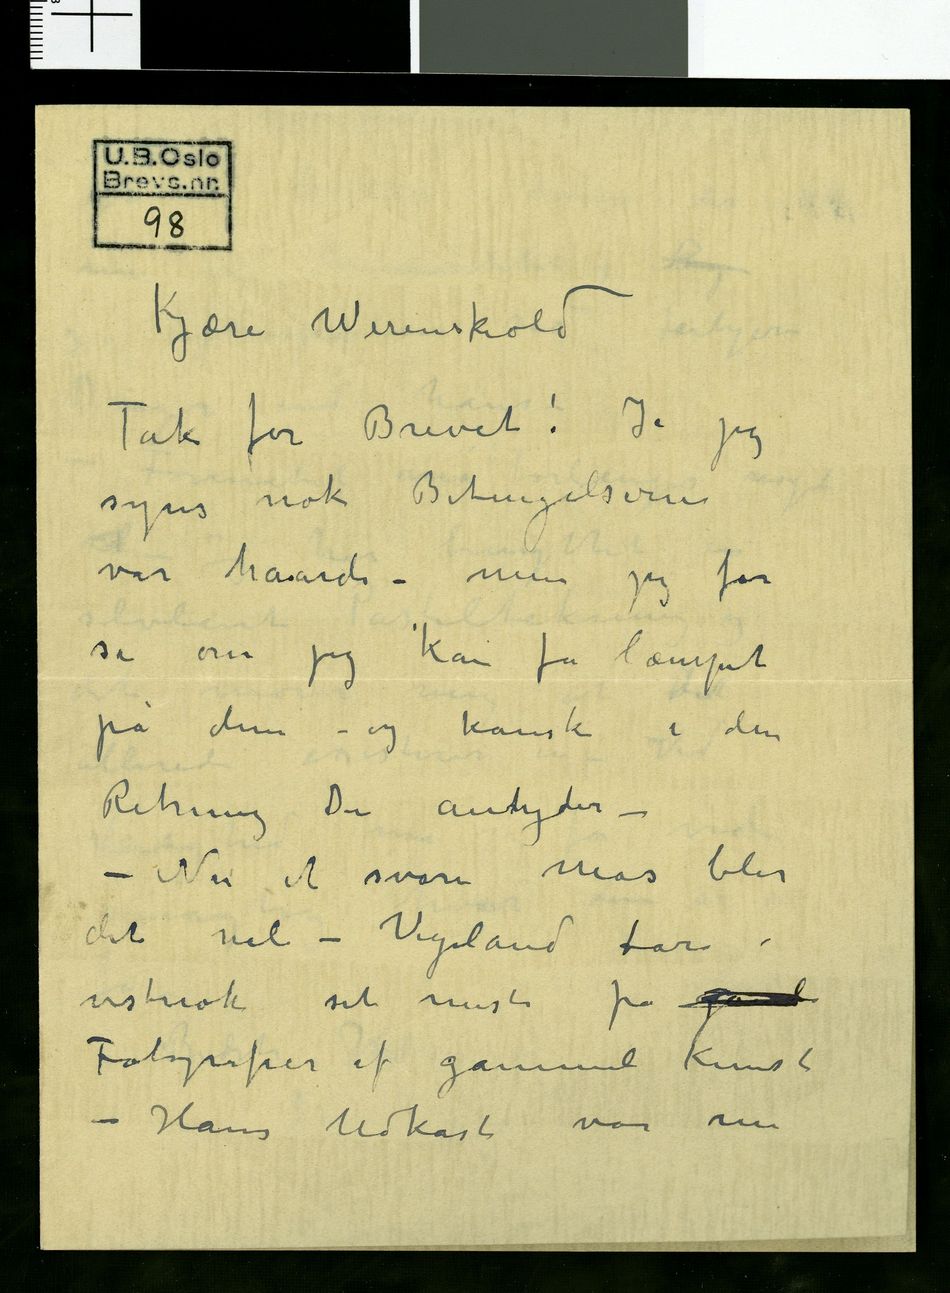 U.B.Oslo
Brevs.nr.
98
Kjære Werenskiold
Tak for Brevet! Ja jeg
syns nok Betingelserne
var haarde – men jeg får
se om jeg kan få læmpet
på dem – og kanske i den
Retning De antyder –
– Nu et svare mas blir
det vel – Vigeland
vistnok set mest på
Fotografier af gammel Kunst
– Hans Udkast var nu